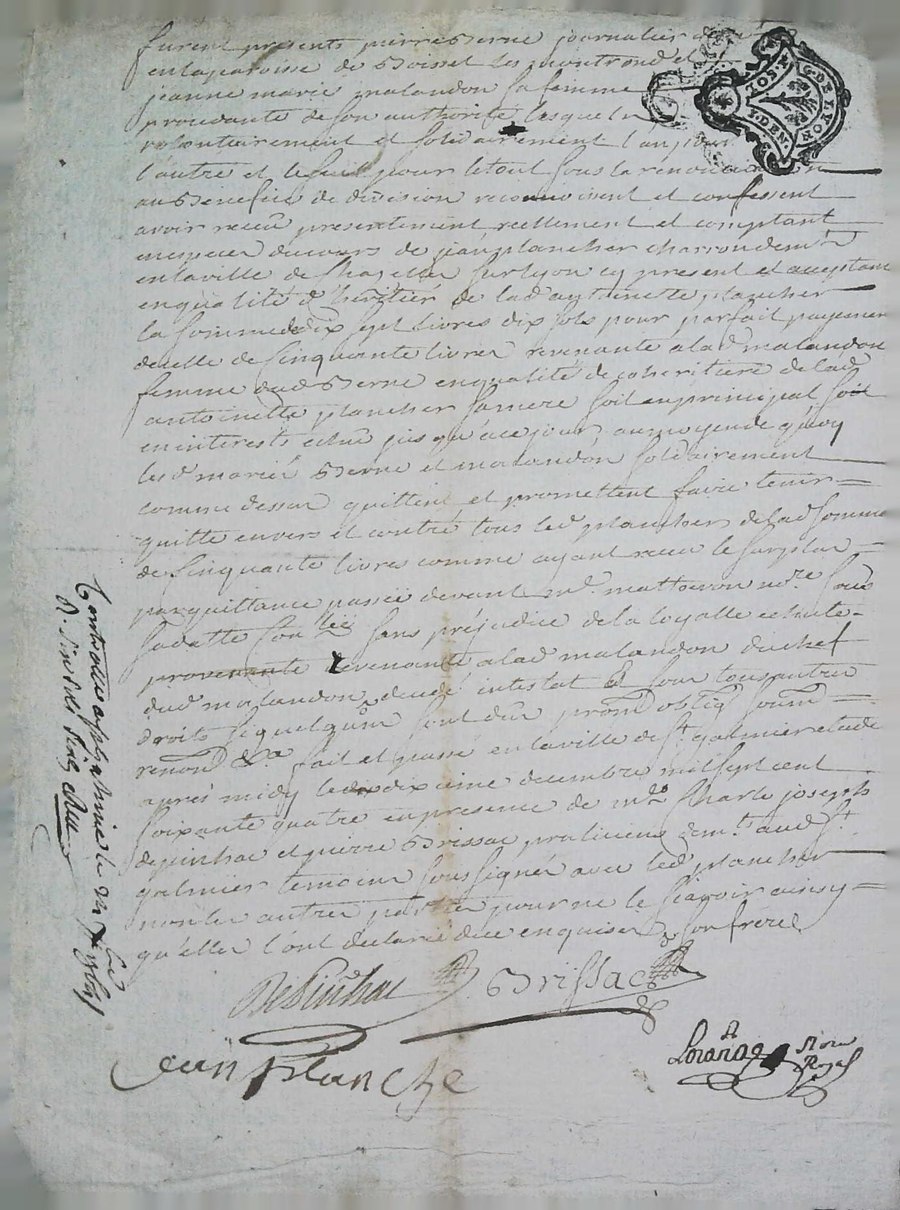 furent presents pierre Berne journalier
en la paroisse de Boisset les montrond et
jeanne marie malandon sa femme
procedante de son authorité lesquels
volontairement et solidairement l'un pour
l'autre et le seul pour le tout sous la renonciation
au Benefice de division reconnoissent et confessent
avoir receu presentement reellement et comptant
en especes du cours de jean plancher charron demt
en la ville de Chazelles sur lyon cy present et acceptant
en qualité d'heritier de lad antoinette plancher
la somme de dix sept livres dix sols pour parfait payement
de celle de Cinquante livres revenante a lad malandon
femme dud Berne en qualité de coheritiere de lad
antoinette plancher sa mere soit en principal soit
en interests echus jusqu'a ce jour, au moyen de quoy
les d mariés Berne et malandon solidairement
comme dessus quittent et promettent faire tenir
quitte envers et contre tous led plancher de lad somme
de Cinquante livres comme ayant receu le surplus
par quittance passée devant me mathevon nore sous
sa datte Conlée sans prejudice de la
provenante revenante a lad malandon du chef
dud malandon decedé intestat et sous tous autres
droits si quelqu'un sont dûs promd obligt soumt
renond &a fait et passé en la ville de St galmier etude
apres midy le dix dixieme decembre mil sept cent
soixante quatre en presence de mes Charle joseph
depinhac et pierre Brissac praticiens demt aud St
galmier temoins soussignés avec led plancher
non les autres parties pour ne le sçavoir ainsy
qu'elles l'ont declaré de ce enquises
DePinhac Brissac
Jean Planche
Lorange Nore Royal
Controllé a St galmier le